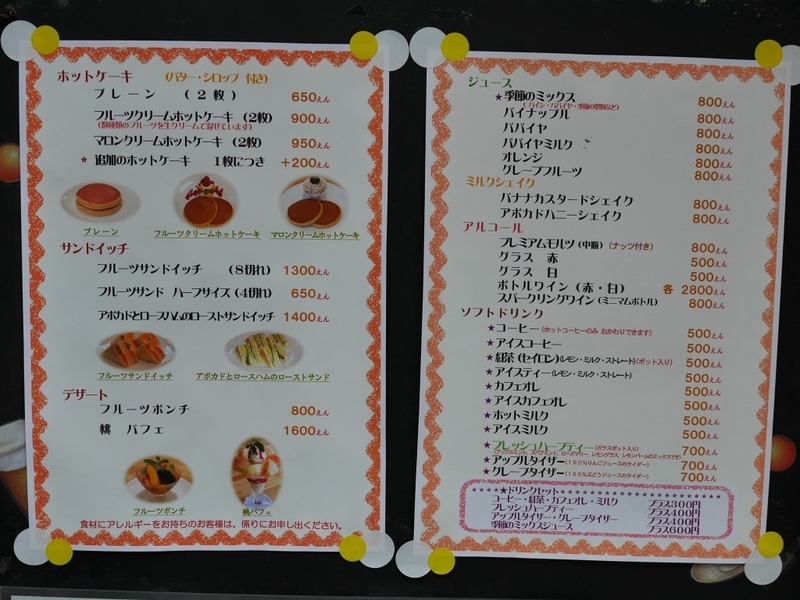 ホットケーキ (バター・シロップ 付き)
プレーン (2枚) 650えん
フルーツクリームホットケーキ (2枚) 900えん
(数種類のフルーツを生クリームで混ぜています)
マロンクリームホットケーキ (2枚) 950えん
* 追加のホットケーキ 1枚につき +200えん
プレーン フルーツクリームホットケーキ マロンクリームホットケーキ
サンドイッチ
フルーツサンドイッチ (8切れ) 1300えん
フルーツサンド ハーフサイズ (4切れ) 650えん
アボカドとロースハムのローストサンドイッチ 1400えん
フルーツサンドイッチ アボカドとロースハムのローストサンド
デザート
フルーツポンチ 800えん
桃 パフェ 1600えん
フルーツポンチ 桃パフェ
食材にアレルギーをお持ちのお客様は、係りにお申し出ください。
ジュース
★季節のミックス 800えん
(パイン・パパイヤ・季節の果物など)
パイナップル 800えん
パパイヤ 800えん
パパイヤミルク 800えん
オレンジ 800えん
グレープフルーツ 800えん
ミルクシェイク
バナナカスタードシェイク 800えん
アボカドハニーシェイク 800えん
アルコール
プレミアムモルツ (中瓶) (ナッツ付き) 800えん
グラス 赤 500えん
グラス 白 500えん
ボトルワイン (赤・白) 各 2800えん
スパークリングワイン (ミニマムボトル) 800えん
ソフトドリンク
★コーヒー (ホットコーヒーのみ おかわりできます) 500えん
★アイスコーヒー 500えん
★紅茶 (セイロン) (レモン・ミルク・ストレート) (ポット入り) 500えん
★アイスティー (レモン・ミルク・ストレート) 500えん
★カフェオレ 500えん
★アイスカフェオレ 500えん
★ホットミルク 500えん
★アイスミルク 500えん
★フレッシュハーブティー (ガラスポット入り) 700えん
(アップルミント、スペアミント、ローズマリー、レモングラス、レモンバームのミックスです)
★アップルタイザー (100%りんごジュースのサイダー) 700えん
★グレープタイザー (100%ぶどうジュースのサイダー) 700えん
★★★★★ドリンクセット★★★★★★★★★★★★★★★
コーヒー・紅茶・カフェオレ・ミルク プラス300円
フレッシュハーブティー プラス400円
アップルタイザー・グレープタイザー プラス400円
季節のミックスジュース プラス600円